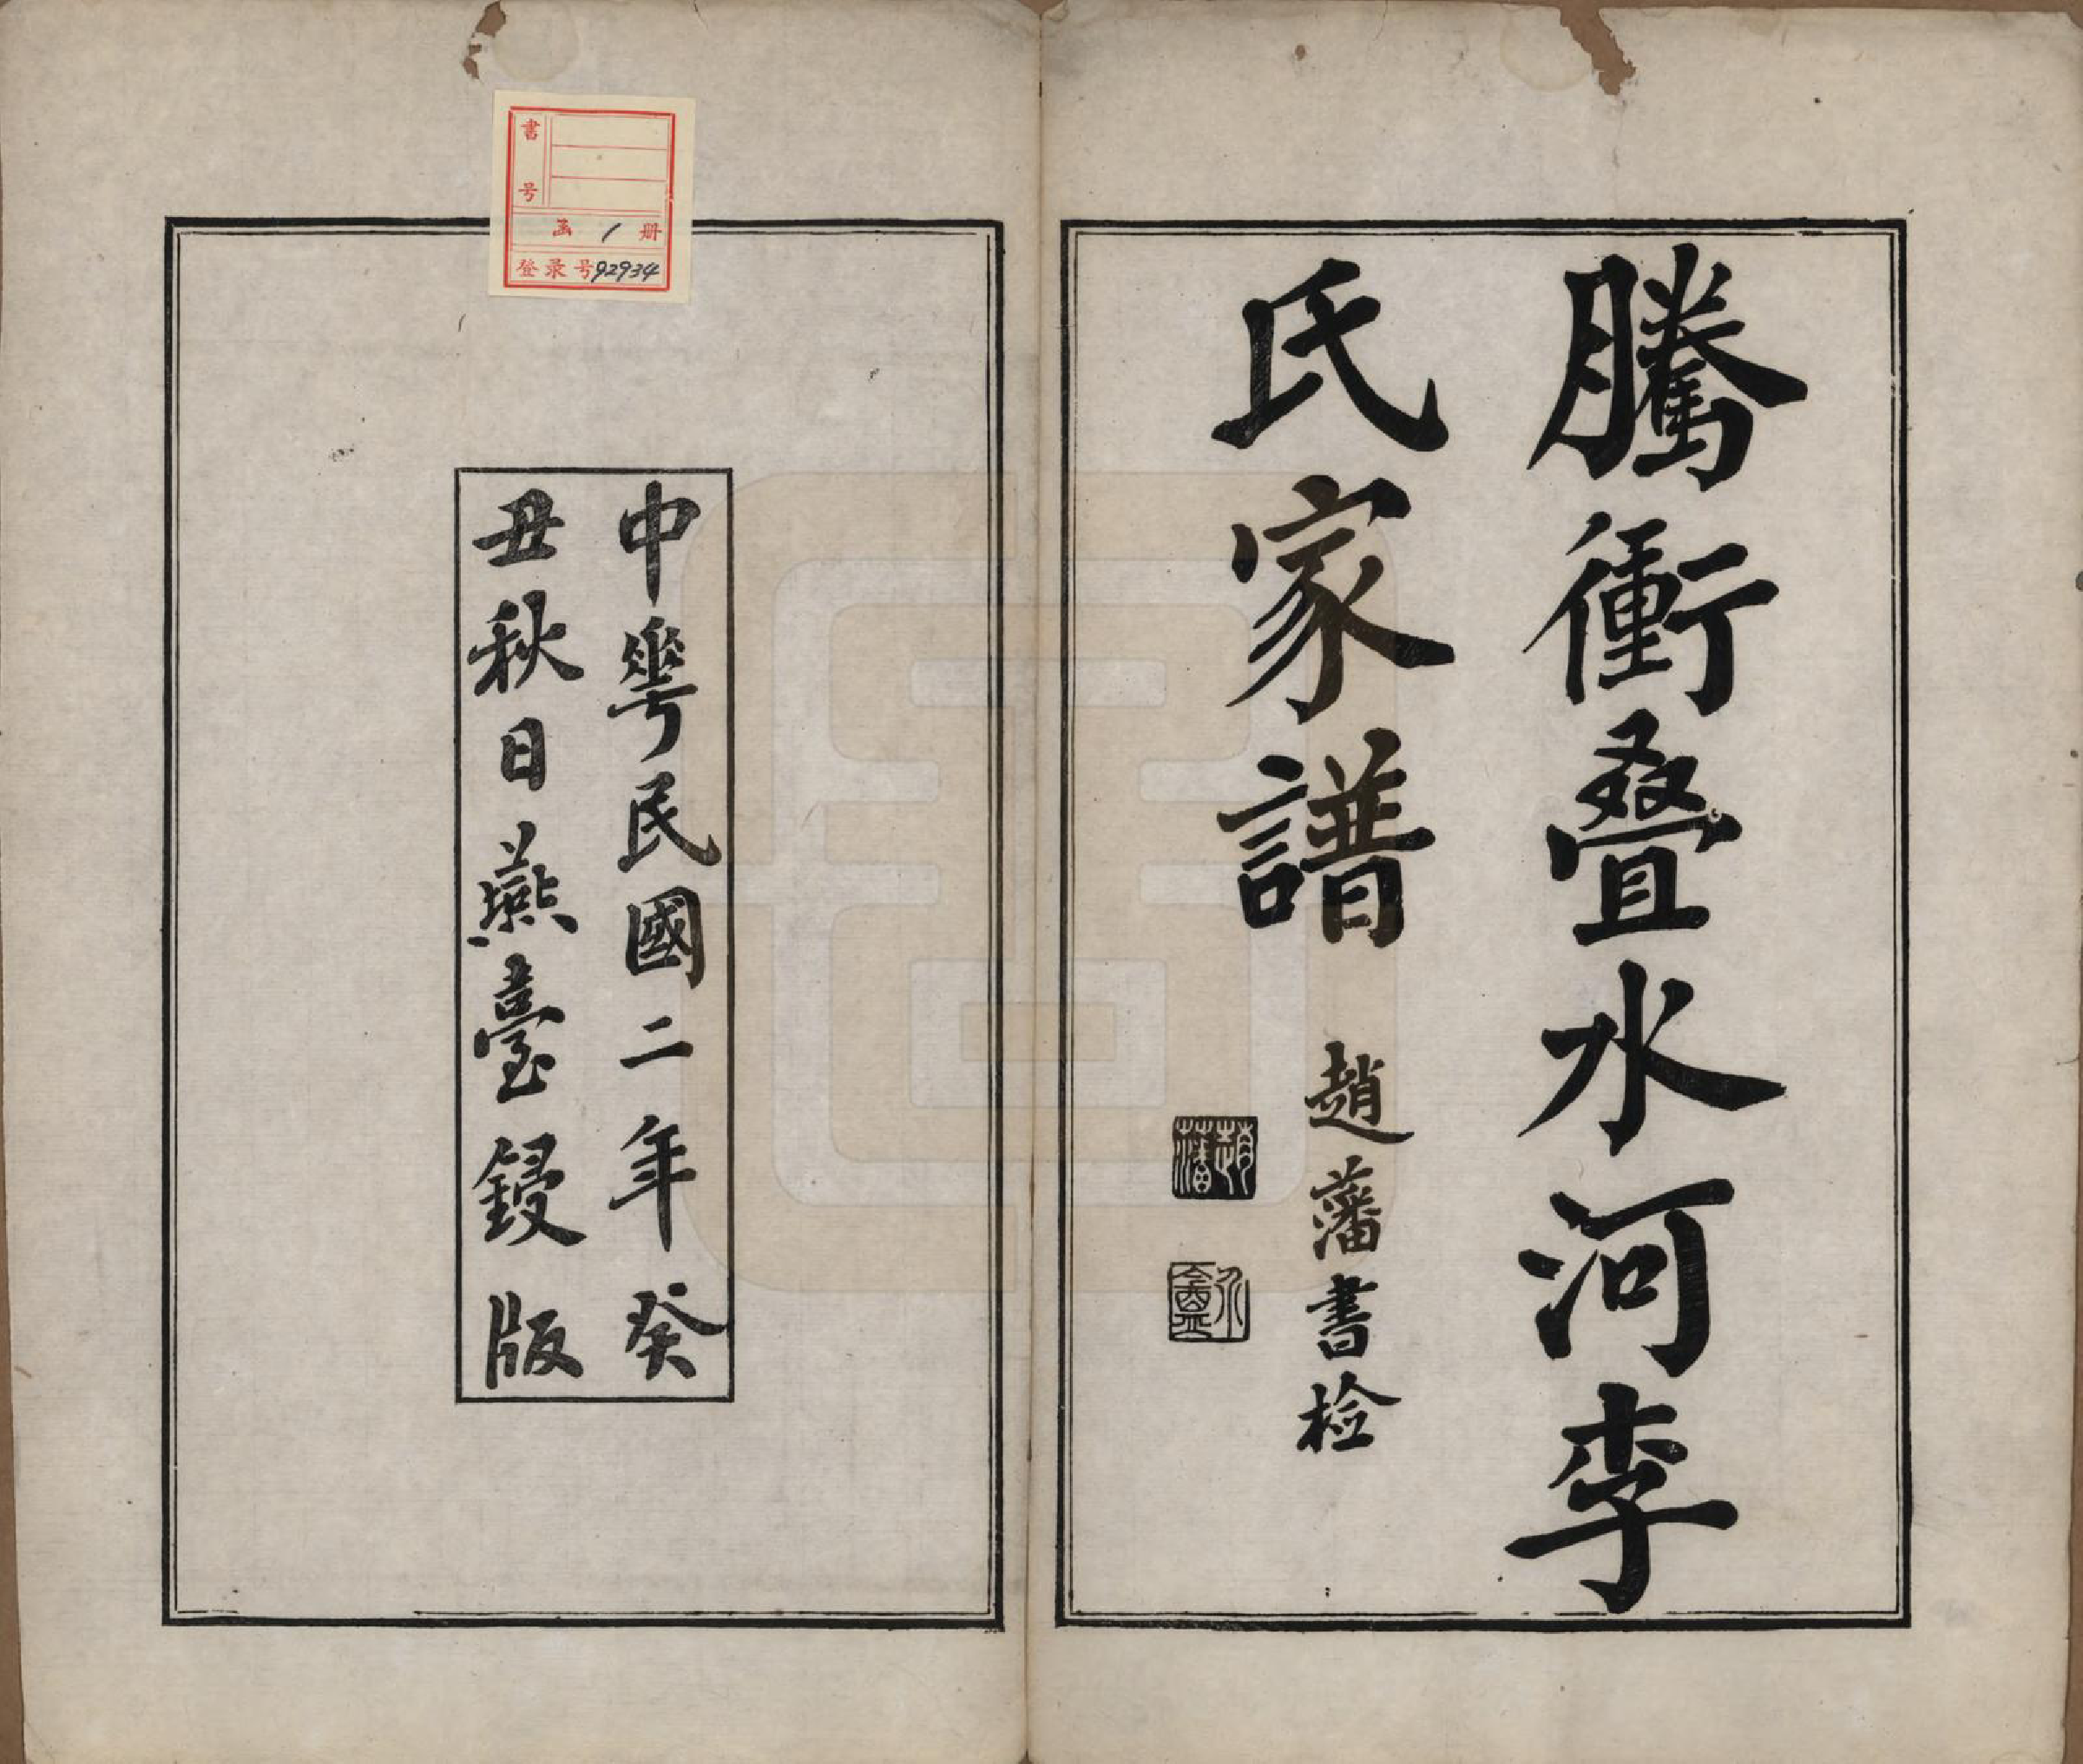 騰衝叠水河李
氏家譜
趙藩書檢
趙藩
中華民國二年癸
丑秋日燕臺鋟版
書号
函 1 册
登录号92934